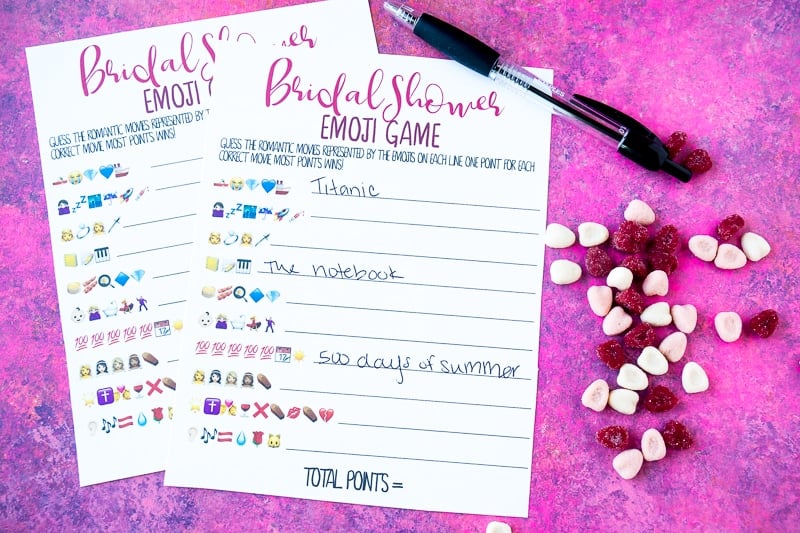 Bridal Sh er
EMOJI G
GUESS THE ROMANTIC MOVIES REPRESENTED BY T
CORRECT MOVIE MOST POINTS WINS!
Bridal Shower
EMOJI GAME
GUESS THE ROMANTIC MOVIES REPRESENTED BY THE EMOJIS ON EACH LINE ONE POINT FOR EACH
CORRECT MOVIE MOST POINTS WINS!
Titanic
The notebook
500 days of summer
TOTAL POINTS =